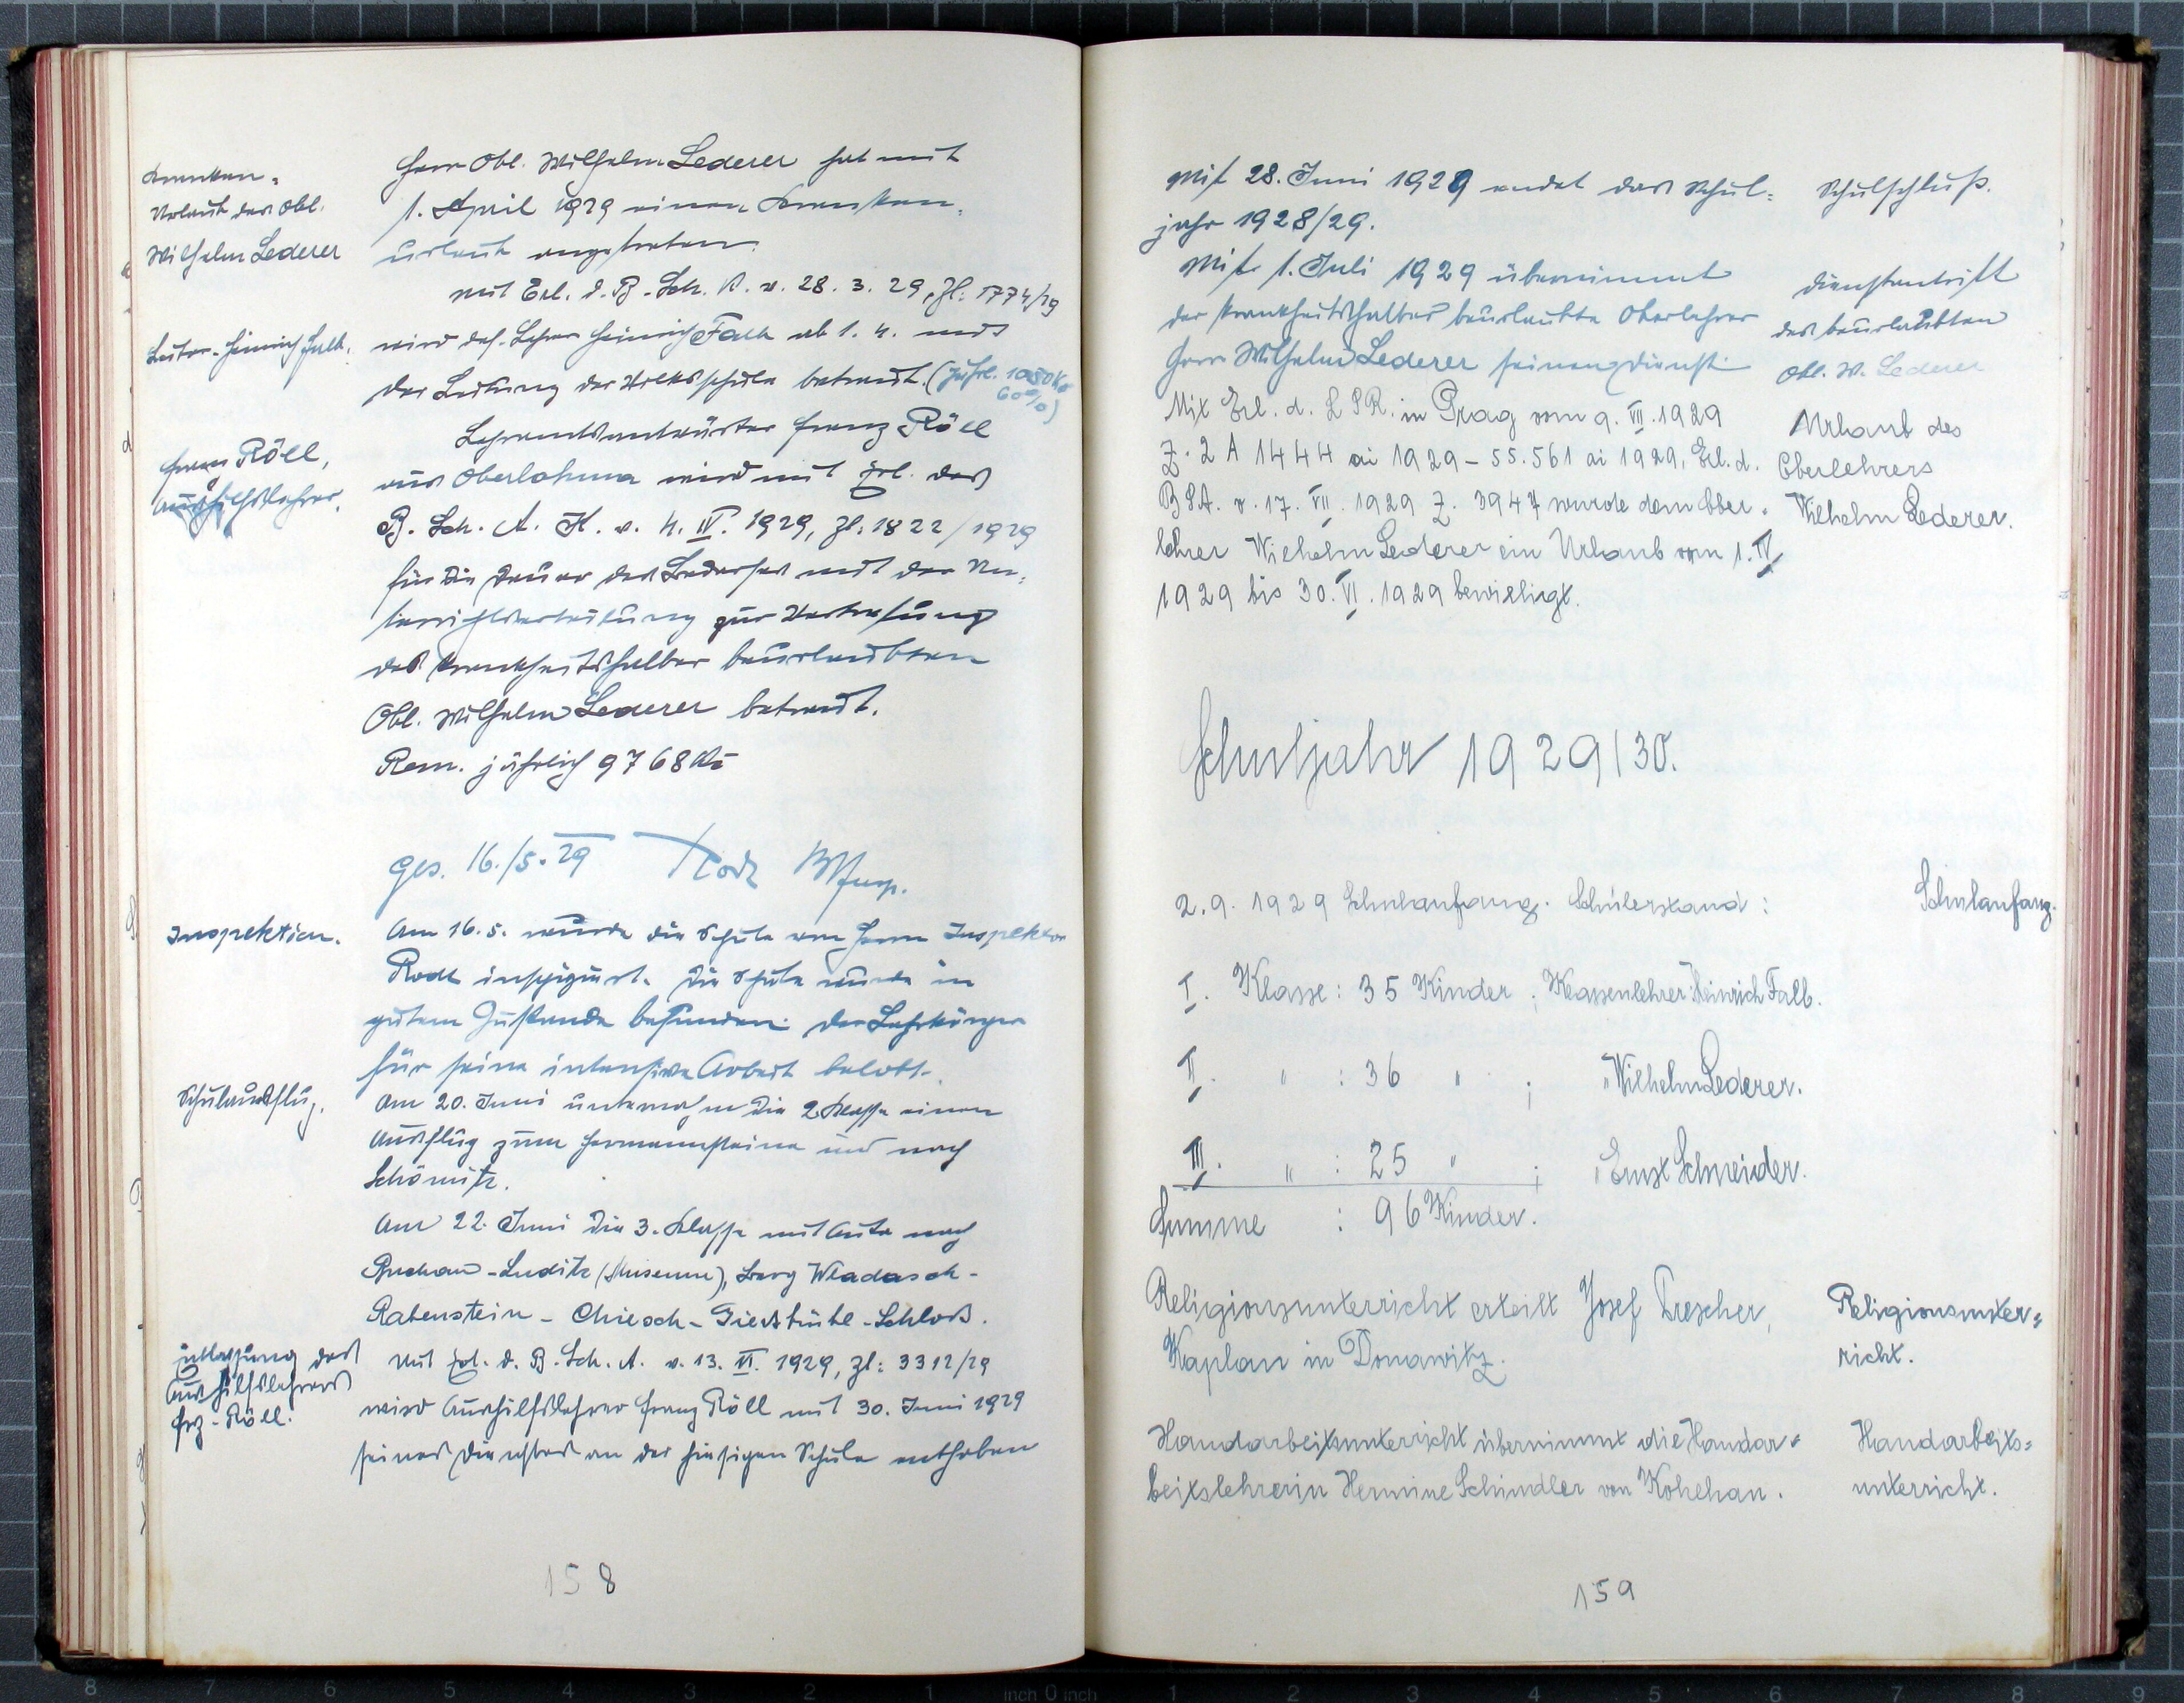 Kranken-
Urlaub des Obl.
Wilhelm Lederer
Herr Obl. Wilhelm Lederer hat mit
1. April 1929 einen Kranken-
urlaub angetreten.
Mit Erl. d. B. Sch. A. v. 28. 3. 29, Zl: 1774/29
Leiter - Heinrich Falb.
wird def. Lehrer Heinrich Falb ab 1. 4. mit
der Leitung der Volksschule betraut. (jährl.
60%)
Franz Röll,
Aushilfslehrer.
Lehramtsanwärter Franz Röll
aus Oberlohma wird mit Erl. des
B. Sch. A. K. v. 4. IV. 1929, Zl: 1822/1929
für die Dauer des Bedarfes mit der Un-
terrichtserteilung zur Vertretung
des krankheitshalber beurlaubten
Obl. Wilhelm Lederer betraut.
Rem. jährlich 9768 Kč
Ges. 16./5. 29
Inspektion.
Am 16. 5. wurde die Schule von Herrn Inspektor
inspiziert. Die Schule wurde in
gutem Zustande befunden. Der Lehrkörper
für seine intensive Arbeit belobt.
Schulausflug.
Am 20. Juni unternahm die 2. Klasse einen
Ausflug zum Hermannsteine und nach
Schömitz.
Am 22. Juni die 3. Klasse mit Auto nach
Buchau - Luditz (Museum), Berg Wladasch -
Rabenstein - Chiesch - Giesshübl - Schloß.
Enthebung des
Aushilfslehrers
Frz. Röll.
Mit Erl. d. B. Sch. A. v. 13. VI. 1929, Zl: 3312/29
wird Aushilfslehrer Franz Röll mit 30. Juni 1929
seines Dienstes an der hiesigen Schule enthoben
158
Mit 28. Juni 1929 endet das Schul-
jahr 1928/29.
Schulschluß.
Mit 1. Juli 1929 übernimmt
der krankheitshalber beurlaubte Oberlehrer
Herr Wilhelm Lederer seinen Dienst.
Dienstantritt
des beurlaubten
Obl. W. Lederer
Mit Erl. d. L S R. in Prag vom 9. VII. 1929
Z. 2 A 1444 ai 1929 - 55.561 ai 1929, Erl. d.
B S A. v. 17. VII. 1929 Z. 3947 wurde dem Ober-
lehrer Wilhelm Lederer ein Urlaub vom 1. IV.
1929 bis 30. VI. 1929 bewilligt.
Urlaub des
Oberlehrers
Wilhelm Lederer.
Schuljahr 1929/30.
2. 9. 1929 Schulanfang. Schülerstand:
Schulanfang.
I. Klasse: 35 Kinder; Klassenlehrer: Heinrich Falb.
II. " : 36 " ; " Wilhelm Lederer.
III. " : 25 " ; " Ernst Schneider.
Summe : 96 Kinder.
Religionsunterricht erteilt Josef Drescher,
Kaplan in Donawitz.
Religionsunter-
richt.
Handarbeitsunterricht übernimmt die Handar-
beitslehrerin Hermine Schindler von Kohehan.
Handarbeits-
unterricht.
159
8 7 6 5 4 3 2 1 inch 0 inch 1 2 3 4 5 6 7 8 9